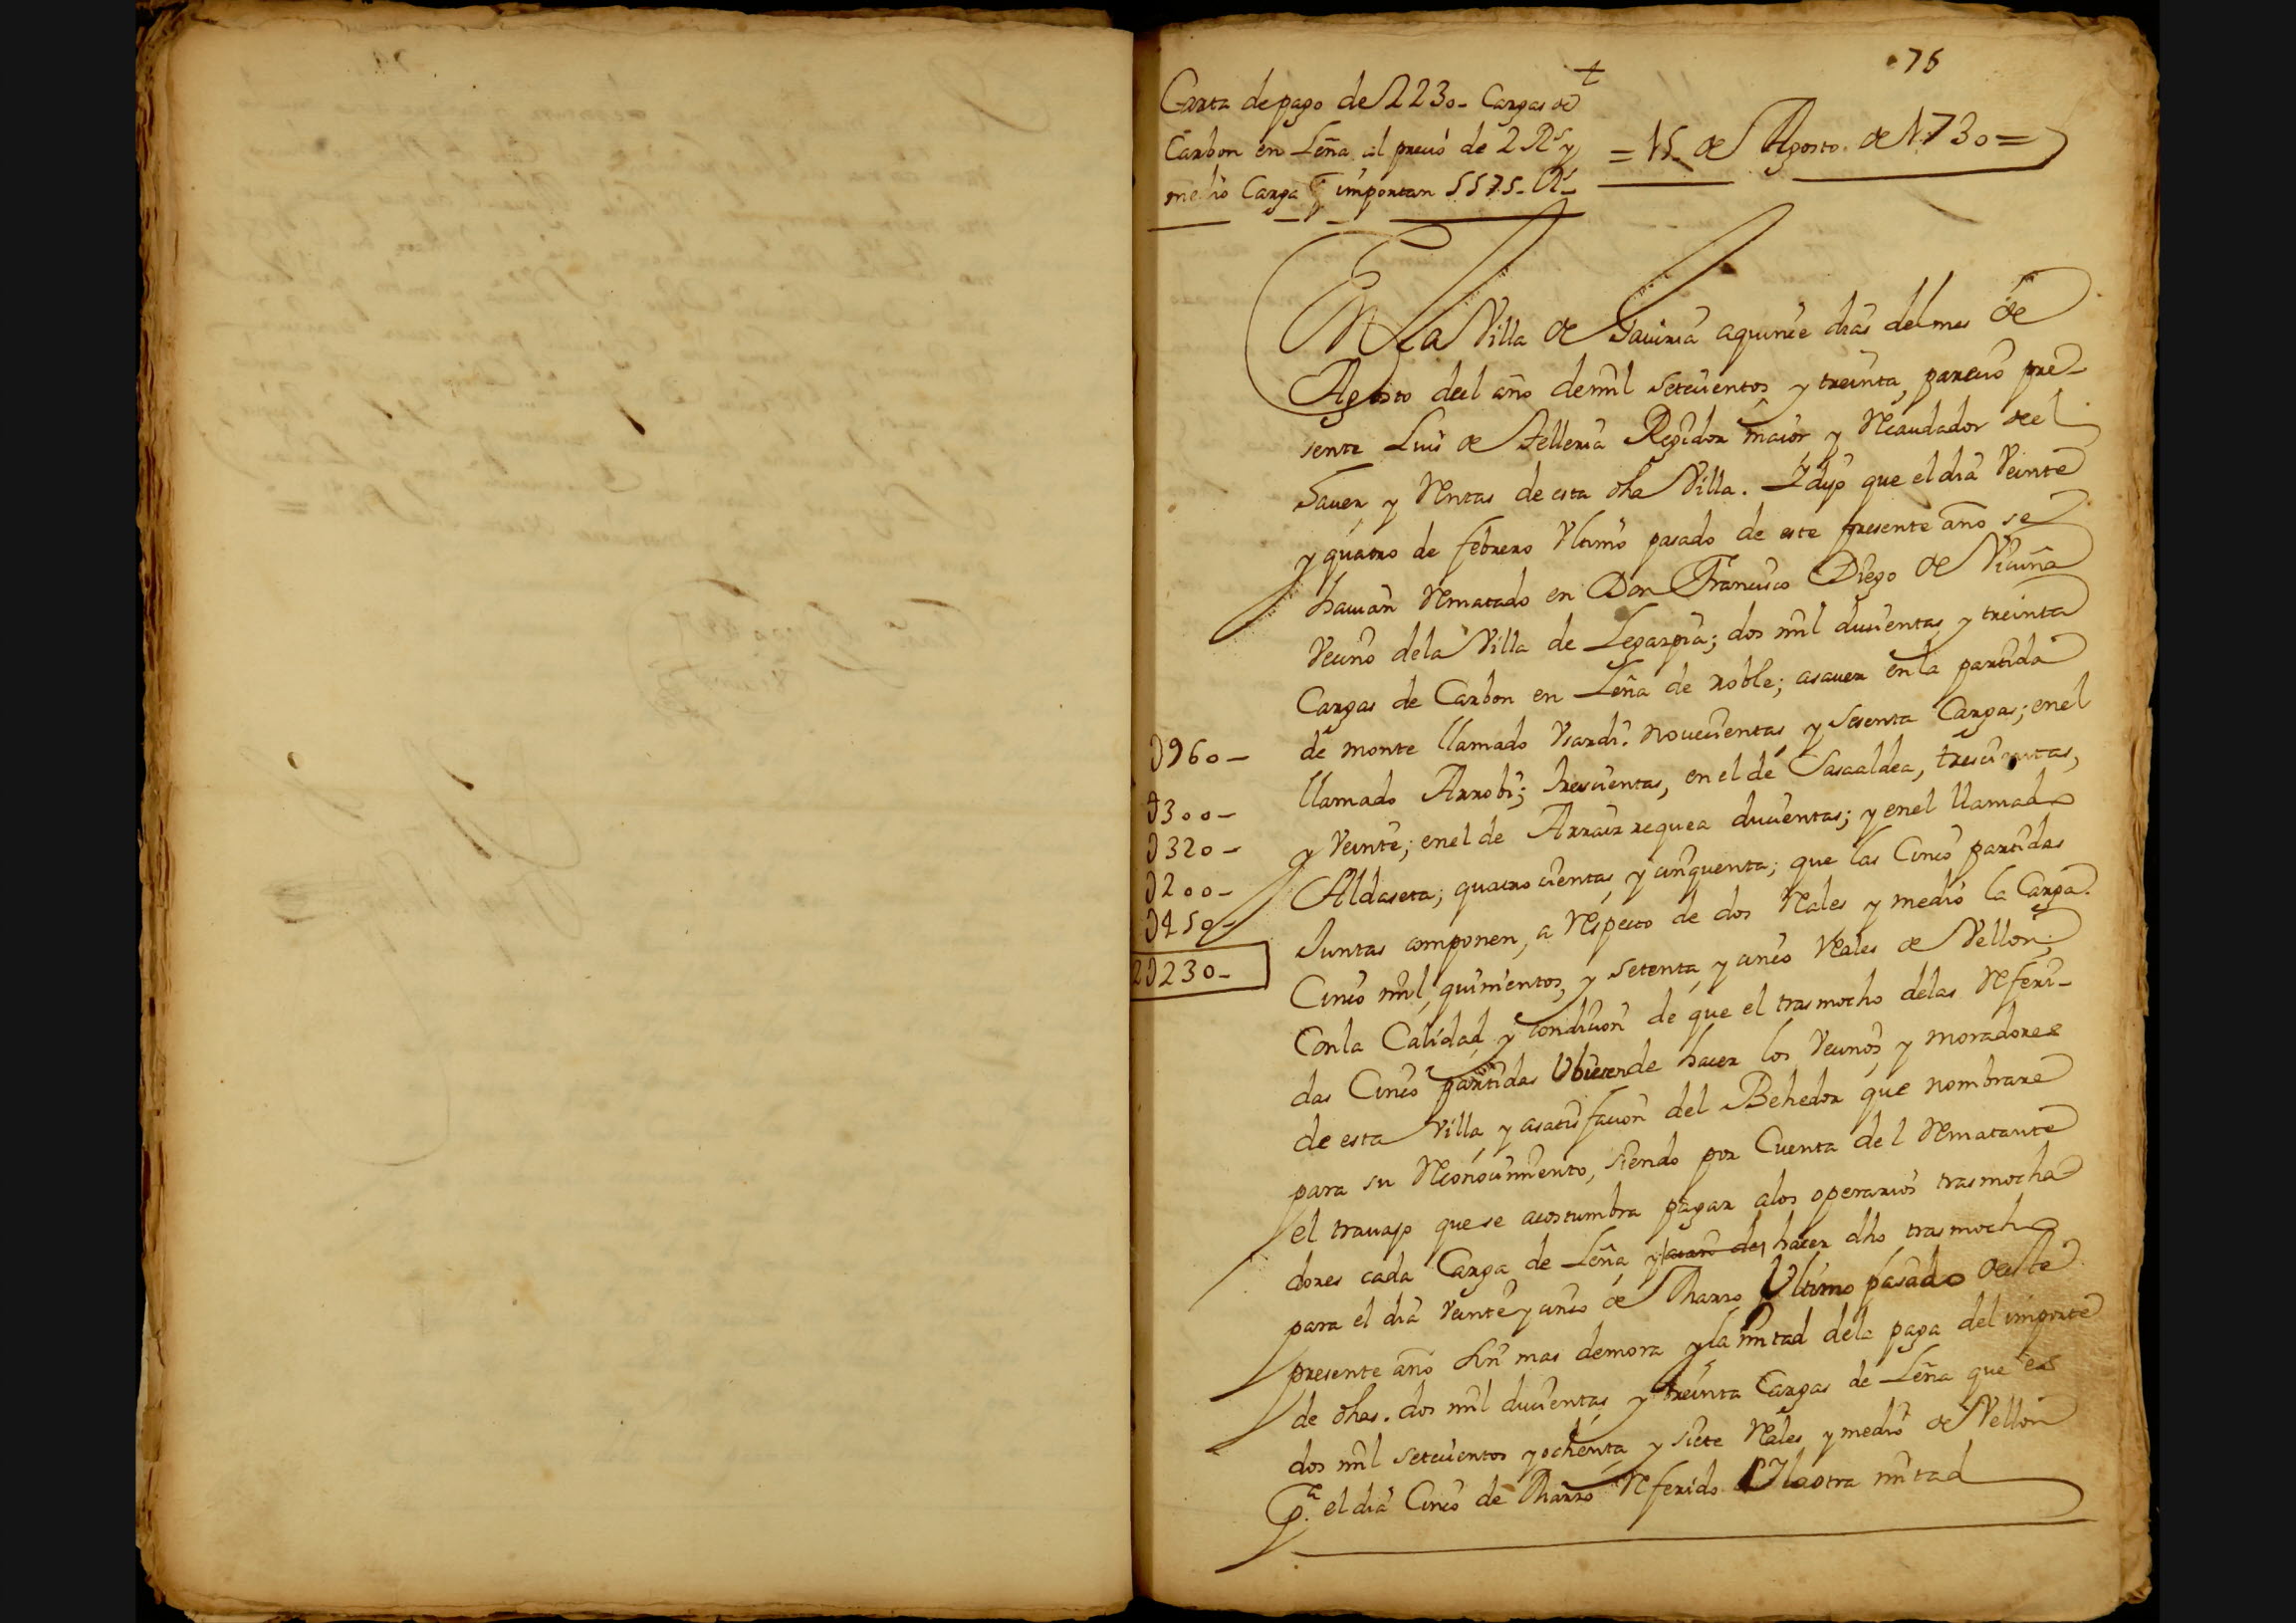 75
Carta de pago de 2230- Cargas de
Carbon en Leña al precio de 2 Rs y
medio Carga q importan 5575- Rs
= 15 de Agosto de 1730 =
En La Villa de Gauiria a quince dias del mes de
Agosto del año de mil setecientos y treinta, parecio pre-
sente Luis de Telleria Regidor maior y Recaudador del
hauer y Rentas de esta dha Villa. I dijo que el dia Veinte
y quatro de febrero Ultimo pasado de este presente año se
hauian Rematado en Don Francisco Diego de Vicuña
Vecino de la Villa de Legazpia; dos mil ducientas y treinta
Cargas de Carbon en Leña de roble; asauer en la partida
de monte llamado Usardi. nouecientas y sesenta Cargas; en el
llamado Arrobi; trescientas, en el de Sasaaldea, trescientas,
y Veinte; en el de Arraizrequea ducientas; y en el llamado
Aldaseta; quatrocientas y cinquenta; que las Cinco partidas
Juntas componen, a Respecto de dos Reales y medio la Carga.
Cinco mil, quinientos, y setenta y cinco Reales de Vellon;
Con la Calidad y condicion de que el trasmocho de las Referi-
das Cinco partidas Ubiesen de hacer los Vecinos y moradores
de esta Villa y a satisfacion del Behedor que nombrare
para su Reconocimiento, siendo por Cuenta del Rematante
el trauajo que se acostumbra pagar a los operarios trasmocha
dores cada Carga de Leña y hacer dho trasmocho
para el dia Veinte y cinco de Marzo Ultimo pasado deste
presente año sin mas demora y la mitad de la paga del importe
de dhas. dos mil ducientas y treinta Cargas de Leña que es
dos mil setecientos y ochenta y siete Reales y medio de Vellon
Pa. el dia Cinco de Marzo Referido Y la otra mitad
U960-
U300-
U320-
U200-
U450-
2U230-